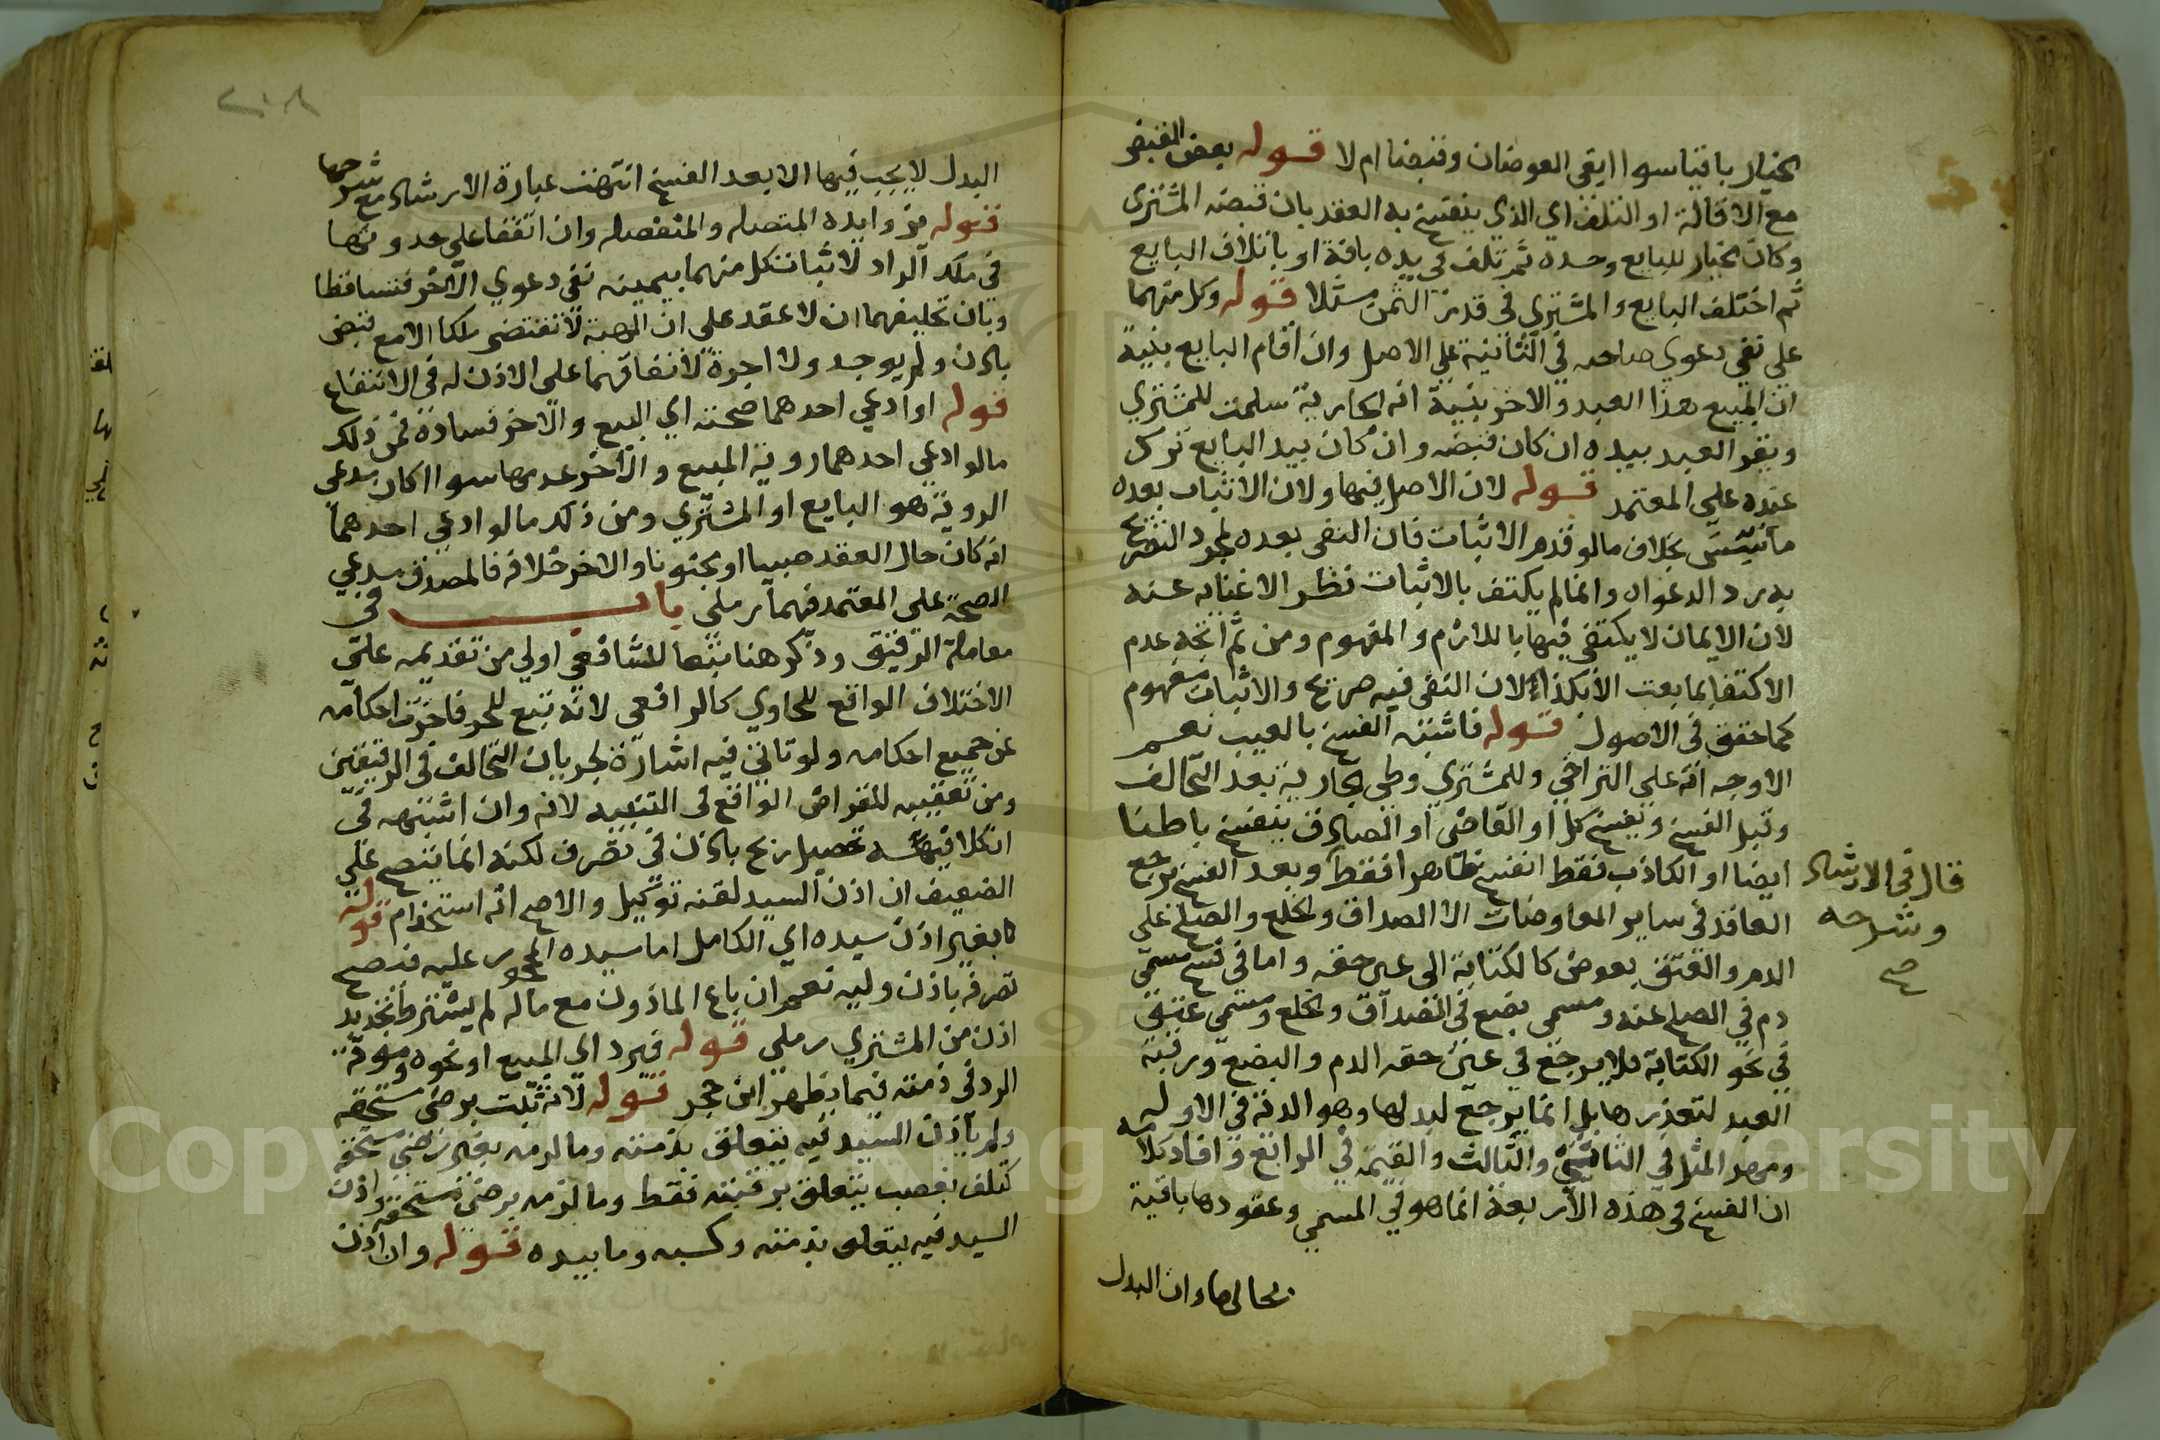 بخيار باقيا سوا ابقي العوضان وقبضا ام لا قوله بعض القبض
مع الاقالة او التلف اي الذي ينفسخ به العقد بان قبضه المشتري
وكان الخيار للبايع وحده ثم تلف في يده بافة او باتلاف البايع
ثم اختلف البايع والمشتري في قدر الثمن مثلا قوله وكل منهما
على نفي دعوي صاحبه في الثانية على الاصل وان اقام البايع بينة
ان المبيع هذا العبد والاخر بينة انه الجارية سلمت للمشتري
ويقر العبد بيده ان كان قبضه وان كان بيد البايع ترك
عنده على المعتمد قوله لان الاصل فيها ولان الاثبات بعده
بخلاف ما لو قدم الاثبات فان النفي بعده لمجرد التصريح
به رد الدعواه وانما لم يكتف بالاثبات نظر الاغنايه عنه
لان الايمان لا يكتفي فيها باللازم والمفهوم ومن ثم اتجه عدم
الاكتفا بما بعت الا بكذا لان النفي فيه صريح والاثبات مفهوم
كما حقق في الاصول قوله فاشبه الفسخ بالعيب نعم
الاوجه انه على التراخي وللمشتري وطي الجارية بعد التحالف
وقبل الفسخ وبفسخ كل او القاضي او الصادق ينفسخ باطنا
ايضا او الكاذب فقط انفسخ ظاهرا فقط وبعد الفسخ يرجع
العاقد في ساير المعاوضات الا الصداق والخلع والصلح على
الدم والعتق بعوض كالكتابة الى عين حقه واما في فسخ مسمي
دم في الصلح عنه ومسمي بضع في الصداق والخلع ومسمي عتق
في نحو الكتابة فلا يرجع في عين حقه الدم والبضع ورقبة
العبد لتعذرها بل انما يرجع لبدلها وهو الدية في الاوله
ومهر المثل في الثاني والثالث والقيمة في الرابع وافاد كلامه
ان الفسخ في هذه الاربعة انما هو في المسمي وعقودها باقية
بحالها وان البدل
قال في الارشاد
وشرحه
صح
٢٠٨
البدل لا يجب فيها الا بعد الفسخ انتهت عبارة الارشاد مع شرحها
قوله بزوايده المتصله والمنفصله وان اتفقا على حدوثها
في ملك الراد لاثبات كل منهما بيمينه نفي دعوي الاخر فتساقطا
وبان تحليفهما ان لا عقد على ان الهبة لا تقتضي ملكا الا مع قبض
باذن ولم يوجد ولا اجرة لاتفاقهما على الاذن له في الانتفاع
قوله او ادعي احدهما صحته اي البيع والاخر فساده فمن ذلك
ما لو ادعي احدهما روية المبيع والاخر عدمها سوا اكان مدعي
الروية هو البايع او المشتري ومن ذلك ما لو ادعي احدهما
انه كان حال العقد صبيا او مجنونا والاخر خلافه فالمصدق مدعي
الصحة على المعتمد فيهما رملي باب في
معاملة الرقيق وذكر هنا تبعا للشافعي اولي من تقديمه على
الاختلاف الواقع للحاوي كالرافعي لانه تبع للحر فاخرت احكامه
عن جميع احكامه ولو تاتي فيه اشارة لجريان التحالف في الرقيقين
ومن تعقيبه للقراض الواقع في التنبيه لانه وان اشبهه في
ان كلا فيه تحصيل ربح باذن في تصرف لكنه انما يتضح على
الضعيف ان اذن السيد لقنه توكيل والاصح انه استخدام قوله
لا بغير اذن سيده اي الكامل اما سيده المحجور عليه فيصح
تصرفه باذن وليه نعم ان باع الماذون مع ماله لم يشترط تجديد
اذن من المشتري رملي قوله فيرد اي المبيع او نحوه ومونة
الرد في ذمته فيما يظهر ابن حجر قوله لانه ثبت برضي مستحقه
ولم ياذن السيد فيه يتعلق بذمته وما لزمه بغير رضي مستحقه
كتلف بغصب يتعلق برقبته فقط وما لزمه برضي مستحقه واذن
السيد فيه يتعلق بذمته وكسبه وما بيده قوله وان اذن